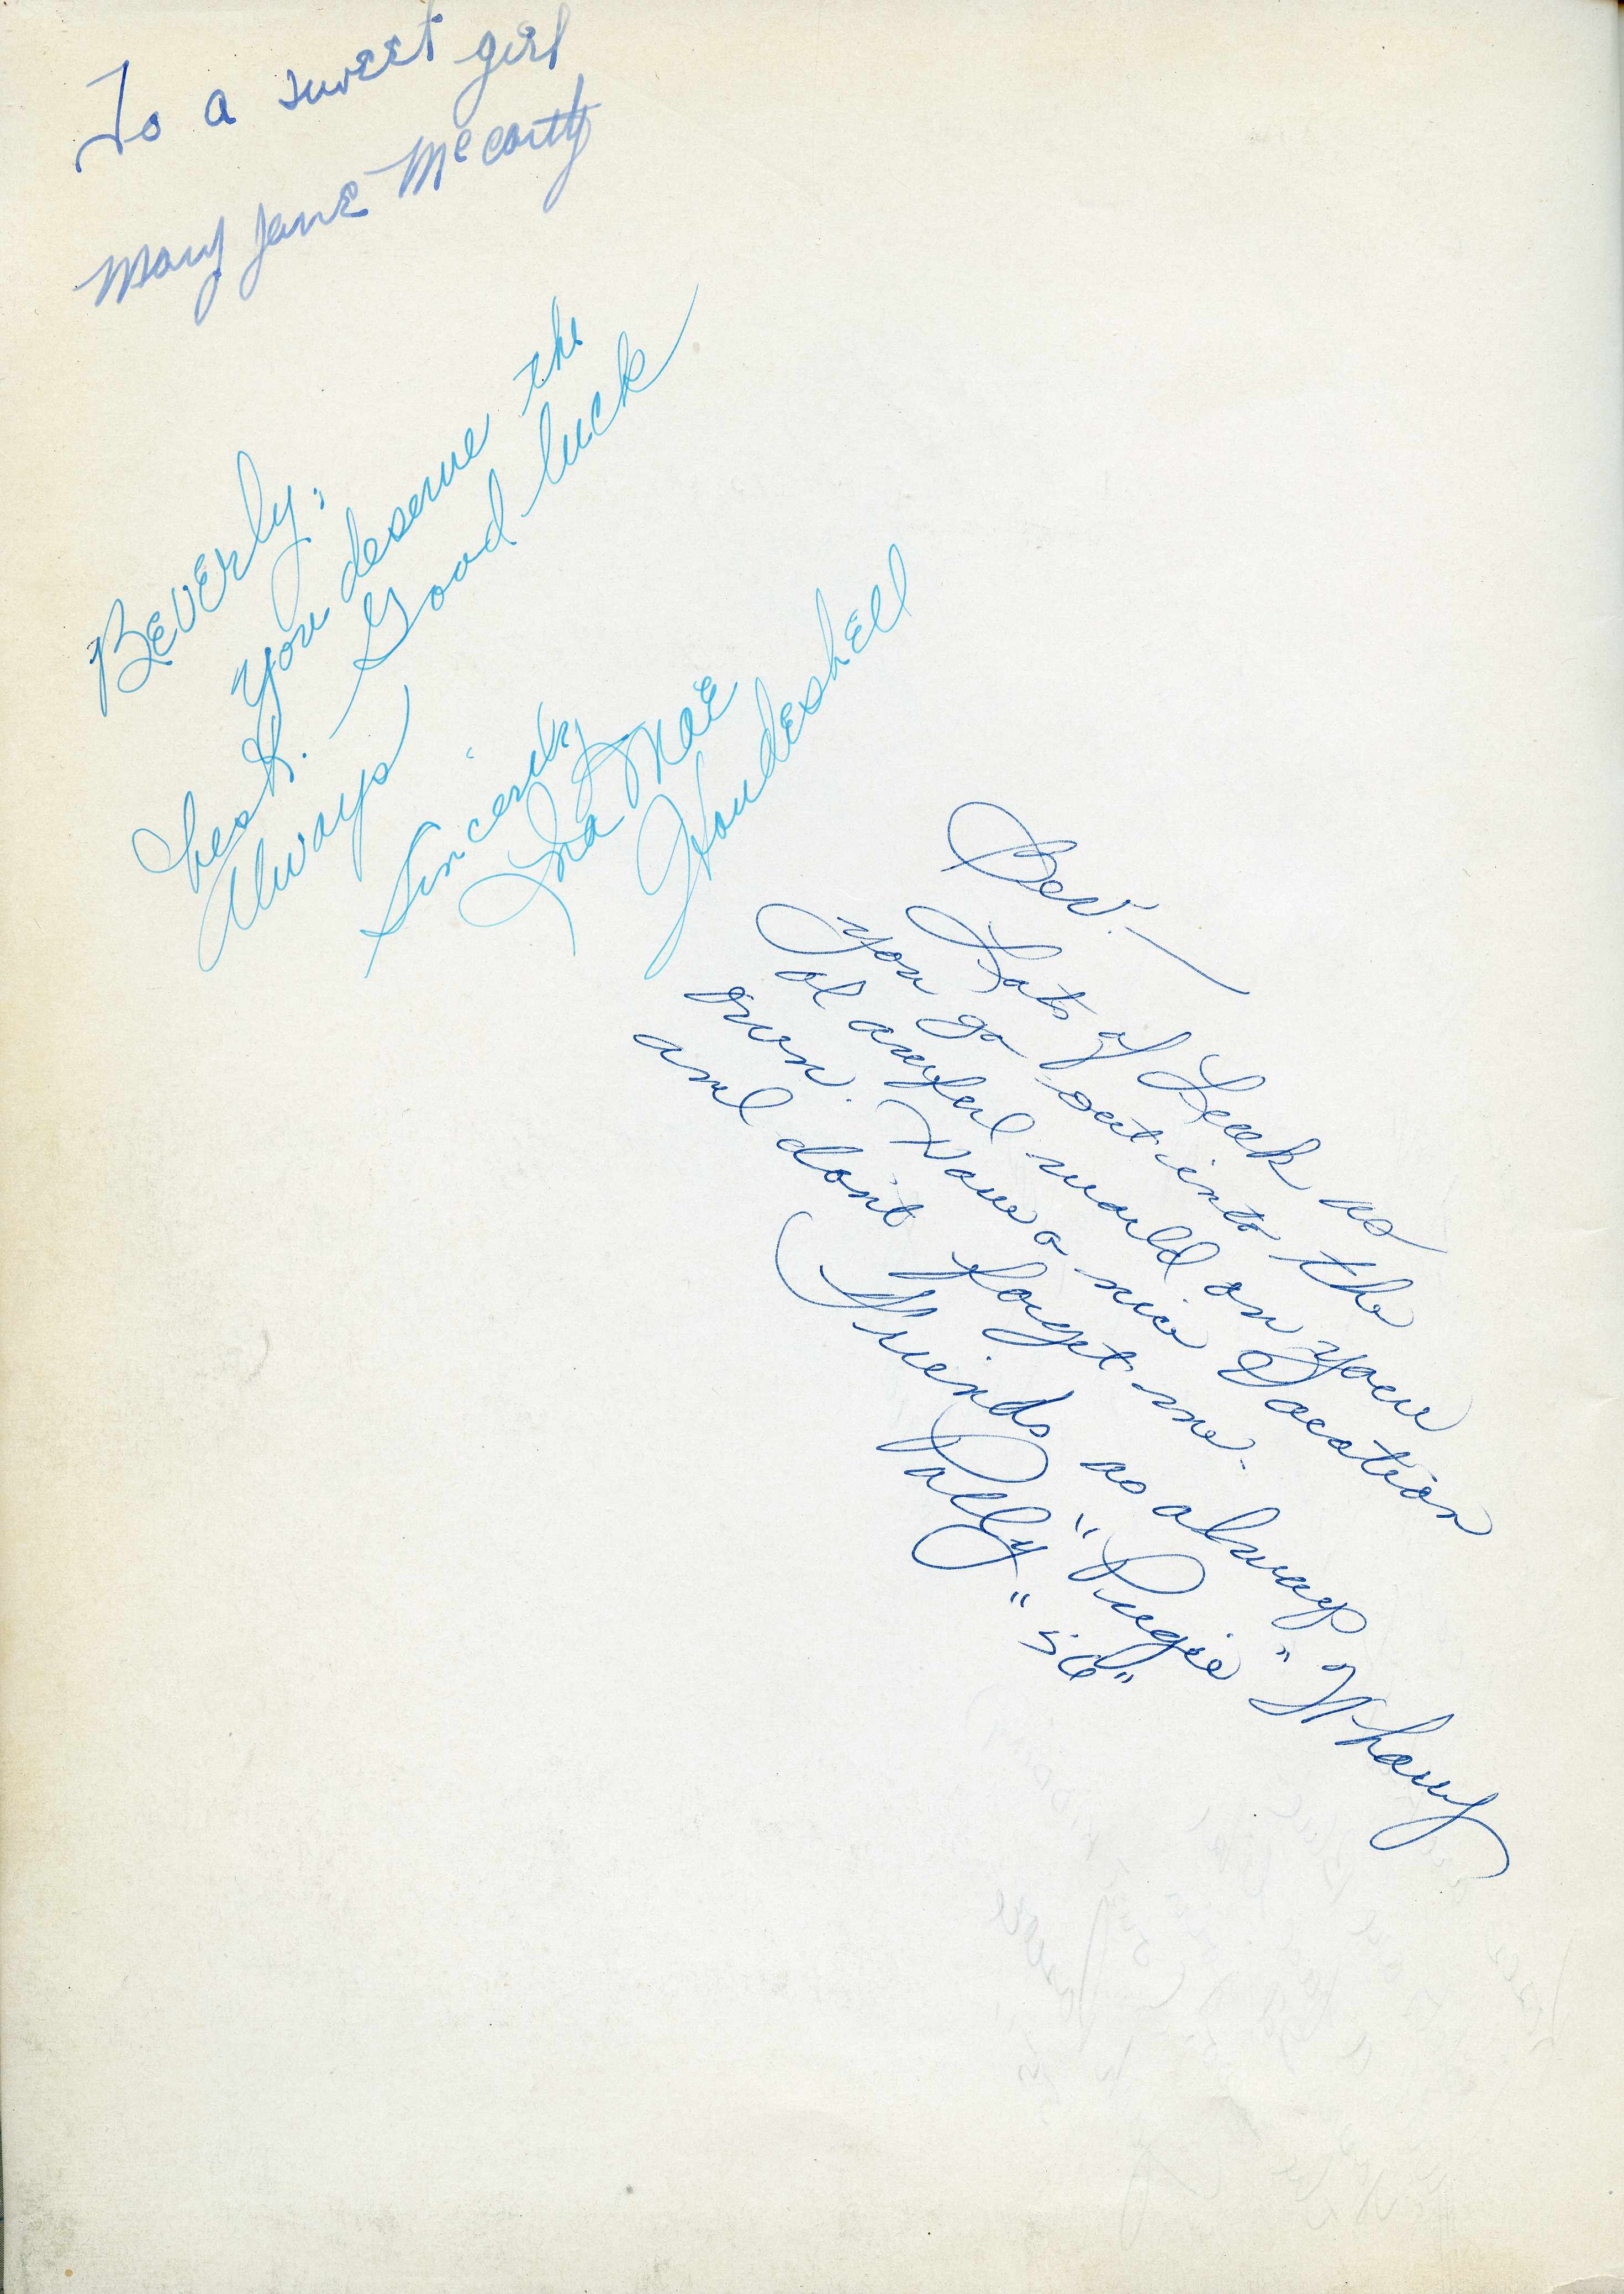 To a sweet girl
Mary Jane McCarty
Beverly;
You deserve the
best. Good luck
Always
Sincerely
Ina Mae
Houdeshell
Bev:
Lots of Luck as
you go out into the
ol awful world on your
own. Have a nice Vacation
and don't forget me.
Friends as always
"Pugie"
Patty
"56"